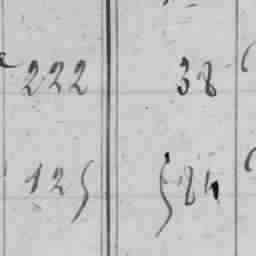 222 38
125 584